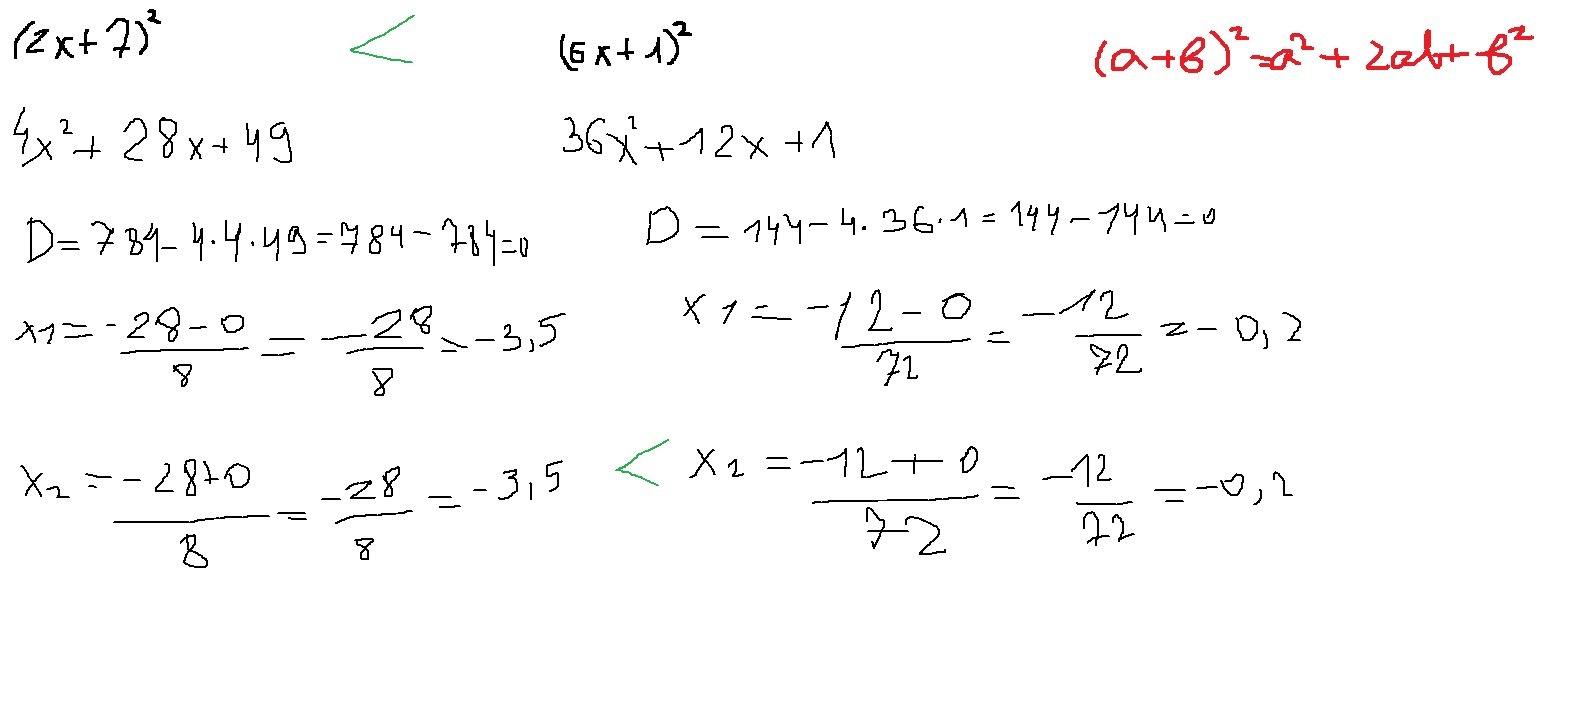 (2x+7)² < (6x+1)² (a+b)²=a²+2ab+b²
4x²+28x+49 36x²+12x+1
D=784-4·4·49=784-784=0 D=144-4·36·1=144-144=0
x1=-28-0/8=-28/8=-3,5 x1=-12-0/72=-12/72=-0,2
x2=-28+0/8=-28/8=-3,5 < x2=-12+0/72=-12/72=-0,2